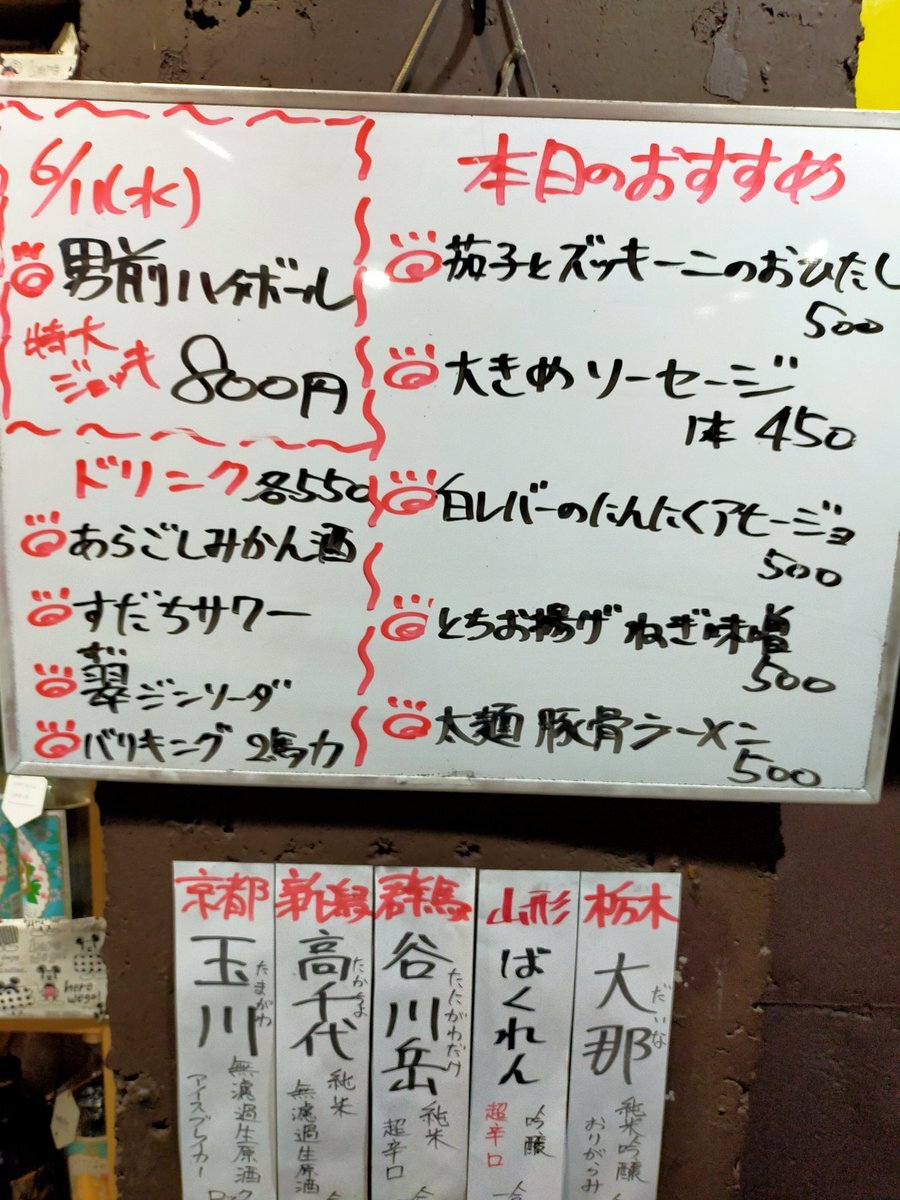 6/11(水)
男前ハイボール
特大
ジョッキ
800円
ドリンク 各550
あらごしみかん酒
すだちサワー
ずい
翠ジンソーダ
バリキング 2馬力
本日のおすすめ
茄子とズッキーニのおひたし
500
大きめソーセージ
1本 450
白レバーのにんにくアヒージョ
500
とちお揚げ ねぎ味噌
500
太麺 豚骨ラーメン
500
京都
玉川
たまがわ
無濾過生原酒
アイスブレーカー
新潟
高千代
たかちよ
純米
無濾過生原酒
群馬
谷川岳
たにがわだけ
純米
超辛口
山形
ばくれん
吟醸
超辛口
栃木
大那
だいな
純米吟醸
おりがらみ
hero